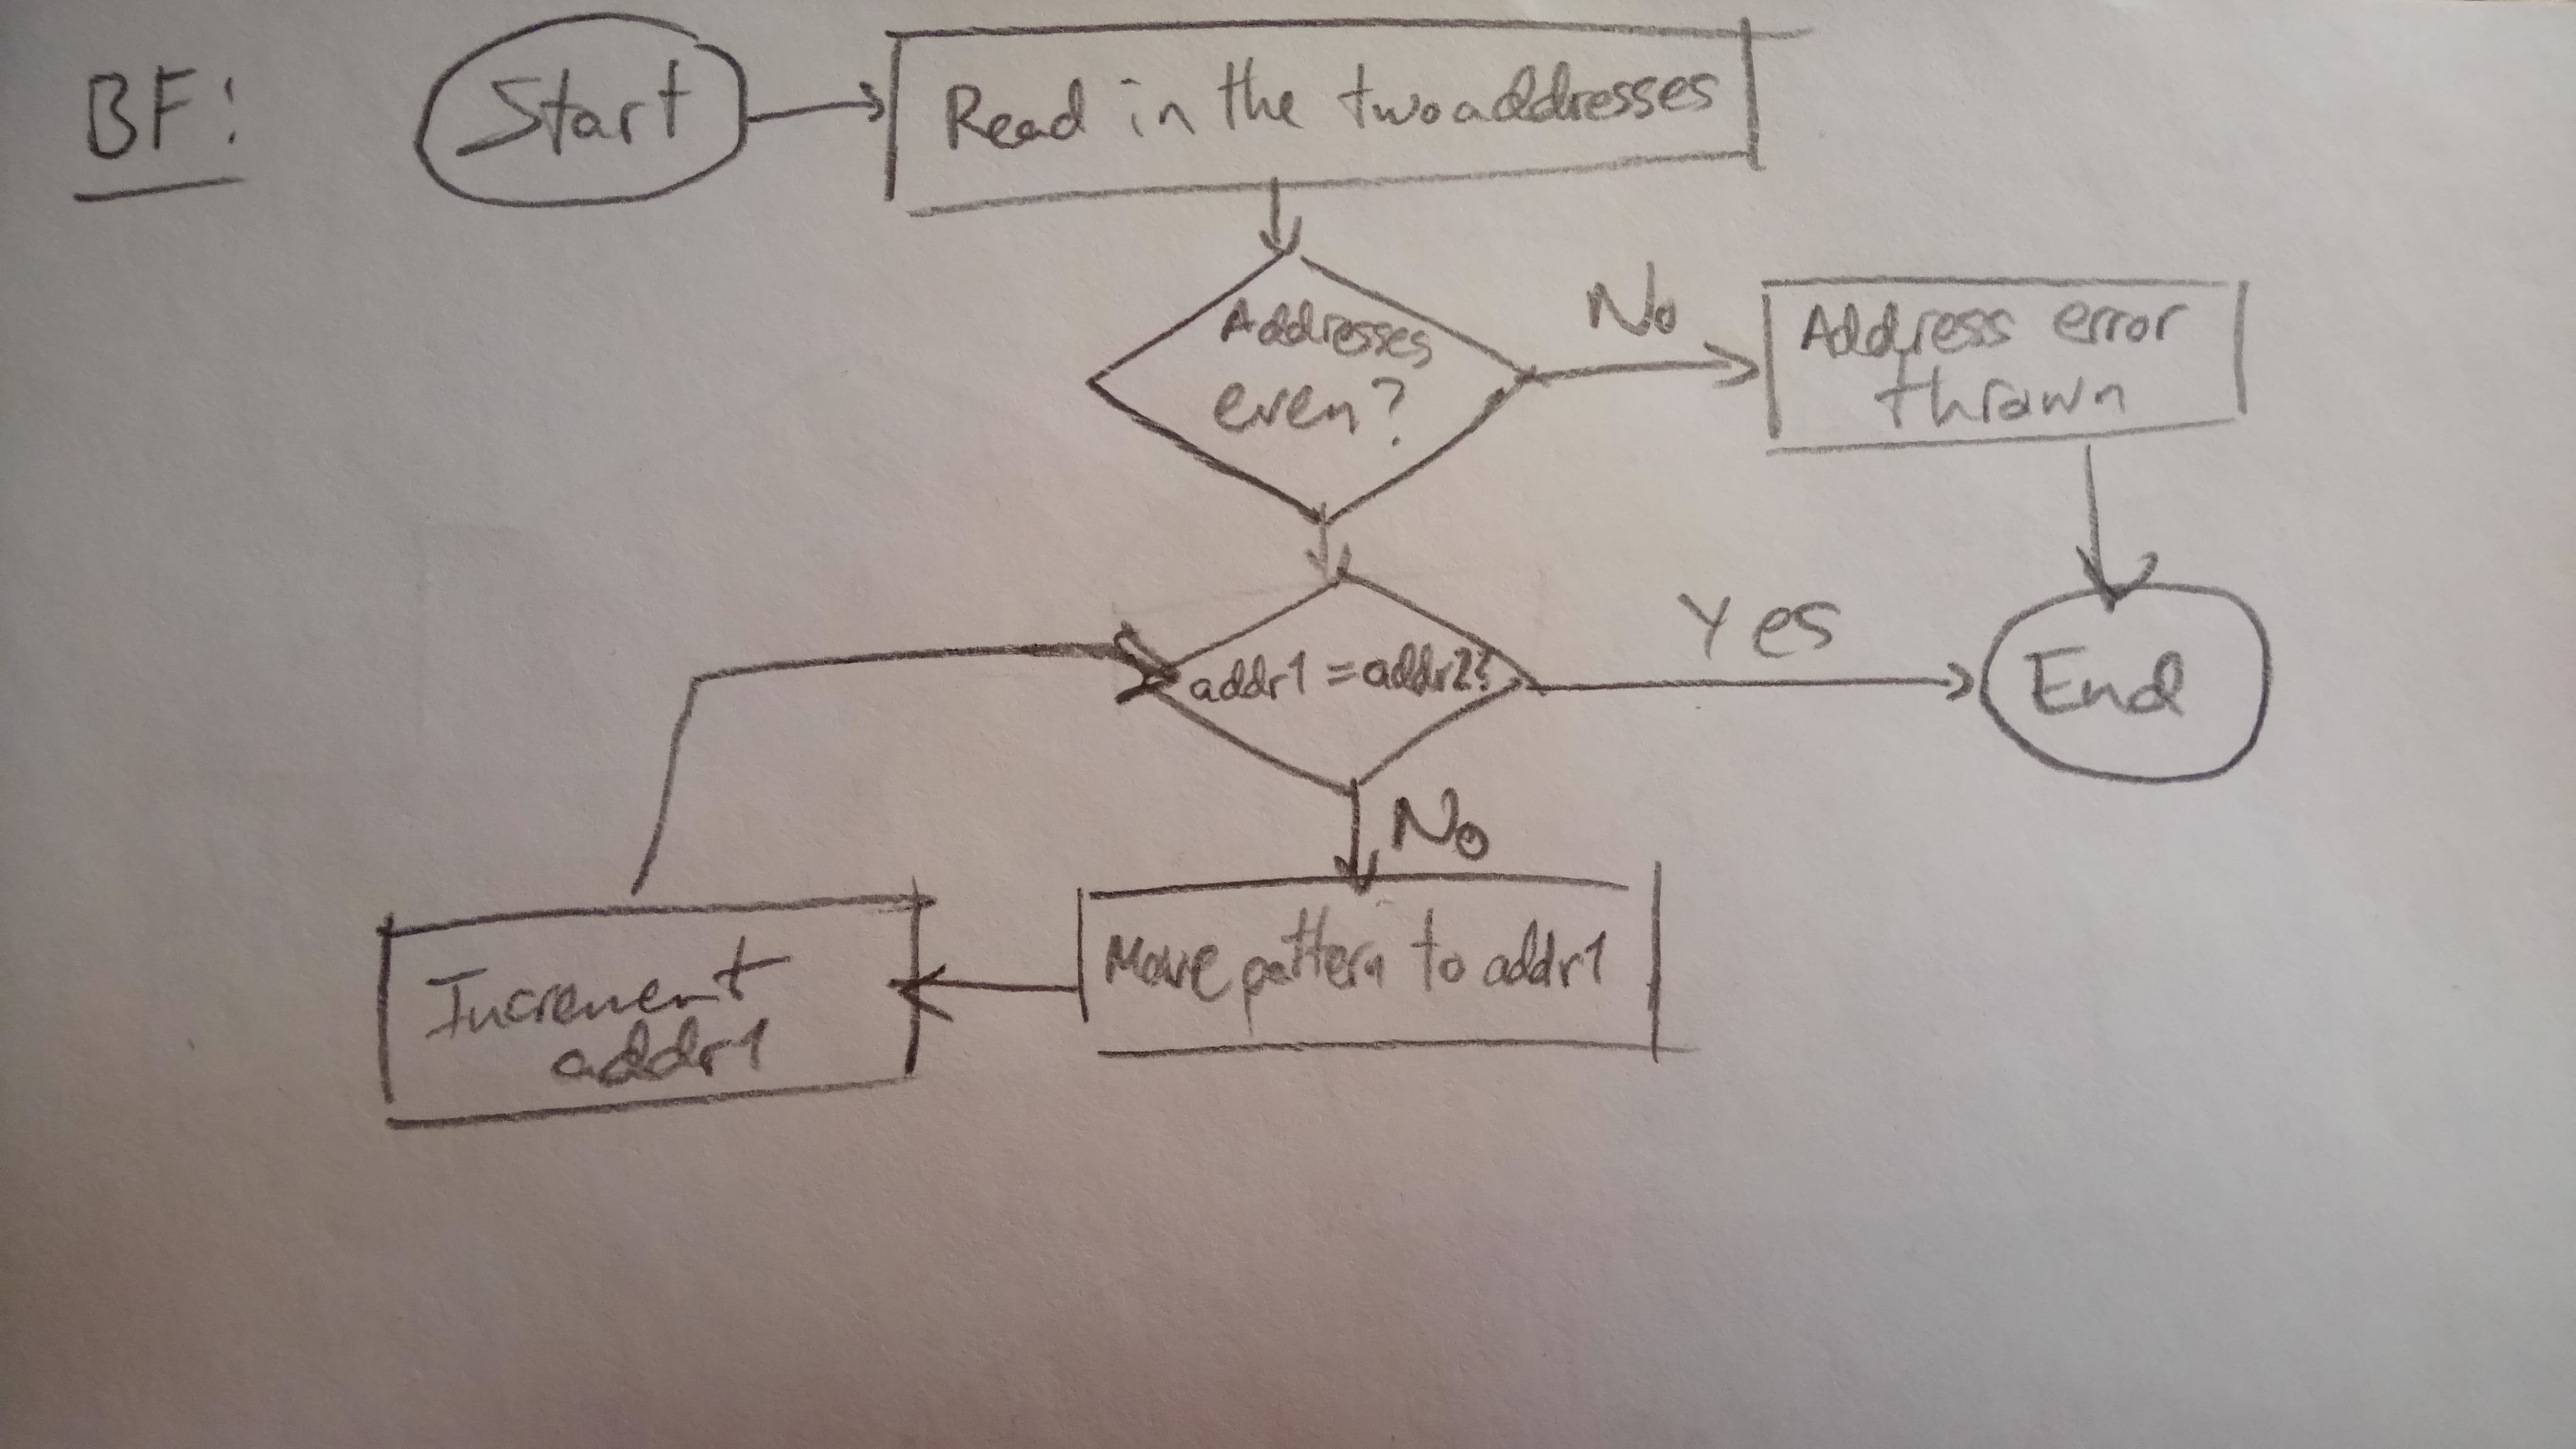 BF:
Start
Read in the two addresses
Addresses
even?
No
Address error
thrown
addr1 = addr2?
Yes
End
No
Move pattern to addr1
Increment
addr1